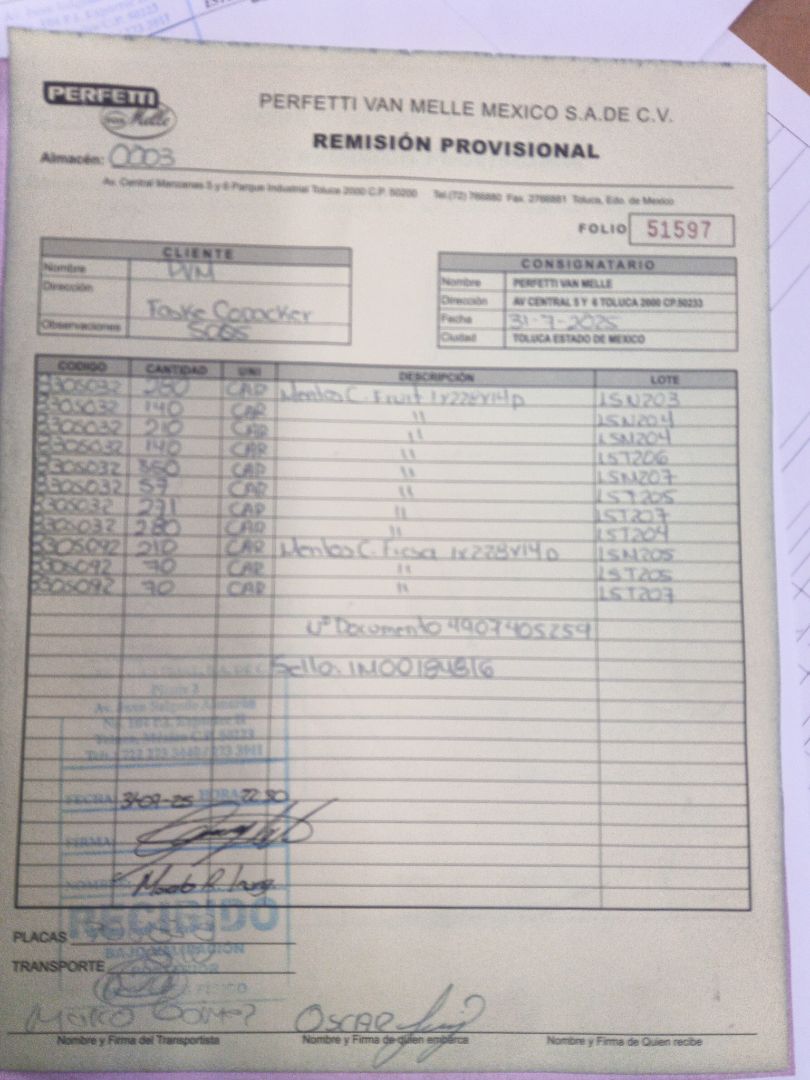 PERFETTI
van Melle
PERFETTI VAN MELLE MEXICO S.A.DE C.V.
REMISIÓN PROVISIONAL
Almacén: 0003
Av. Central Manzanas 5 y 6 Parque Industrial Toluca 2000 C.P. 50200 Tel.(72) 766880 Fax. 2766881 Toluca, Edo. de Mexico
FOLIO 51597
CLIENTE
Nombre PVM
Dirección
Observaciones
CONSIGNATARIO
Nombre PERFETTI VAN MELLE
Dirección AV CENTRAL 5 Y 6 TOLUCA 2000 CP.50233
Fecha 31-7-2025
Ciudad TOLUCA ESTADO DE MEXICO
CODIGO CANTIDAD UNI DESCRIPCIÓN LOTE
3305032 280 CAR Mentos C. Fruit 1x228x14p LSN203
3305032 140 CAR " LSN204
3305032 210 CAR " LSM204
3305032 140 CAR " LST206
3305032 CAR " LSM207
3305032 CAR " LST205
3305032 271 CAR " LST207
3305032 280 CAR " LST204
3305092 210 CAR Mentos C. 1x228x14p LSM205
3305092 70 CAR " LST205
3305092 70 CAR " LST207
N° Documento 4907405259
Sello. 1M00184816
FECHA 31-07-25 HORA 22:30
FIRMA
NOMBRE
RECIBIDO
PLACAS
TRANSPORTE
Marco Gomez OSCAR
Nombre y Firma del Transportista Nombre y Firma de quien embarca Nombre y Firma de Quien recibe